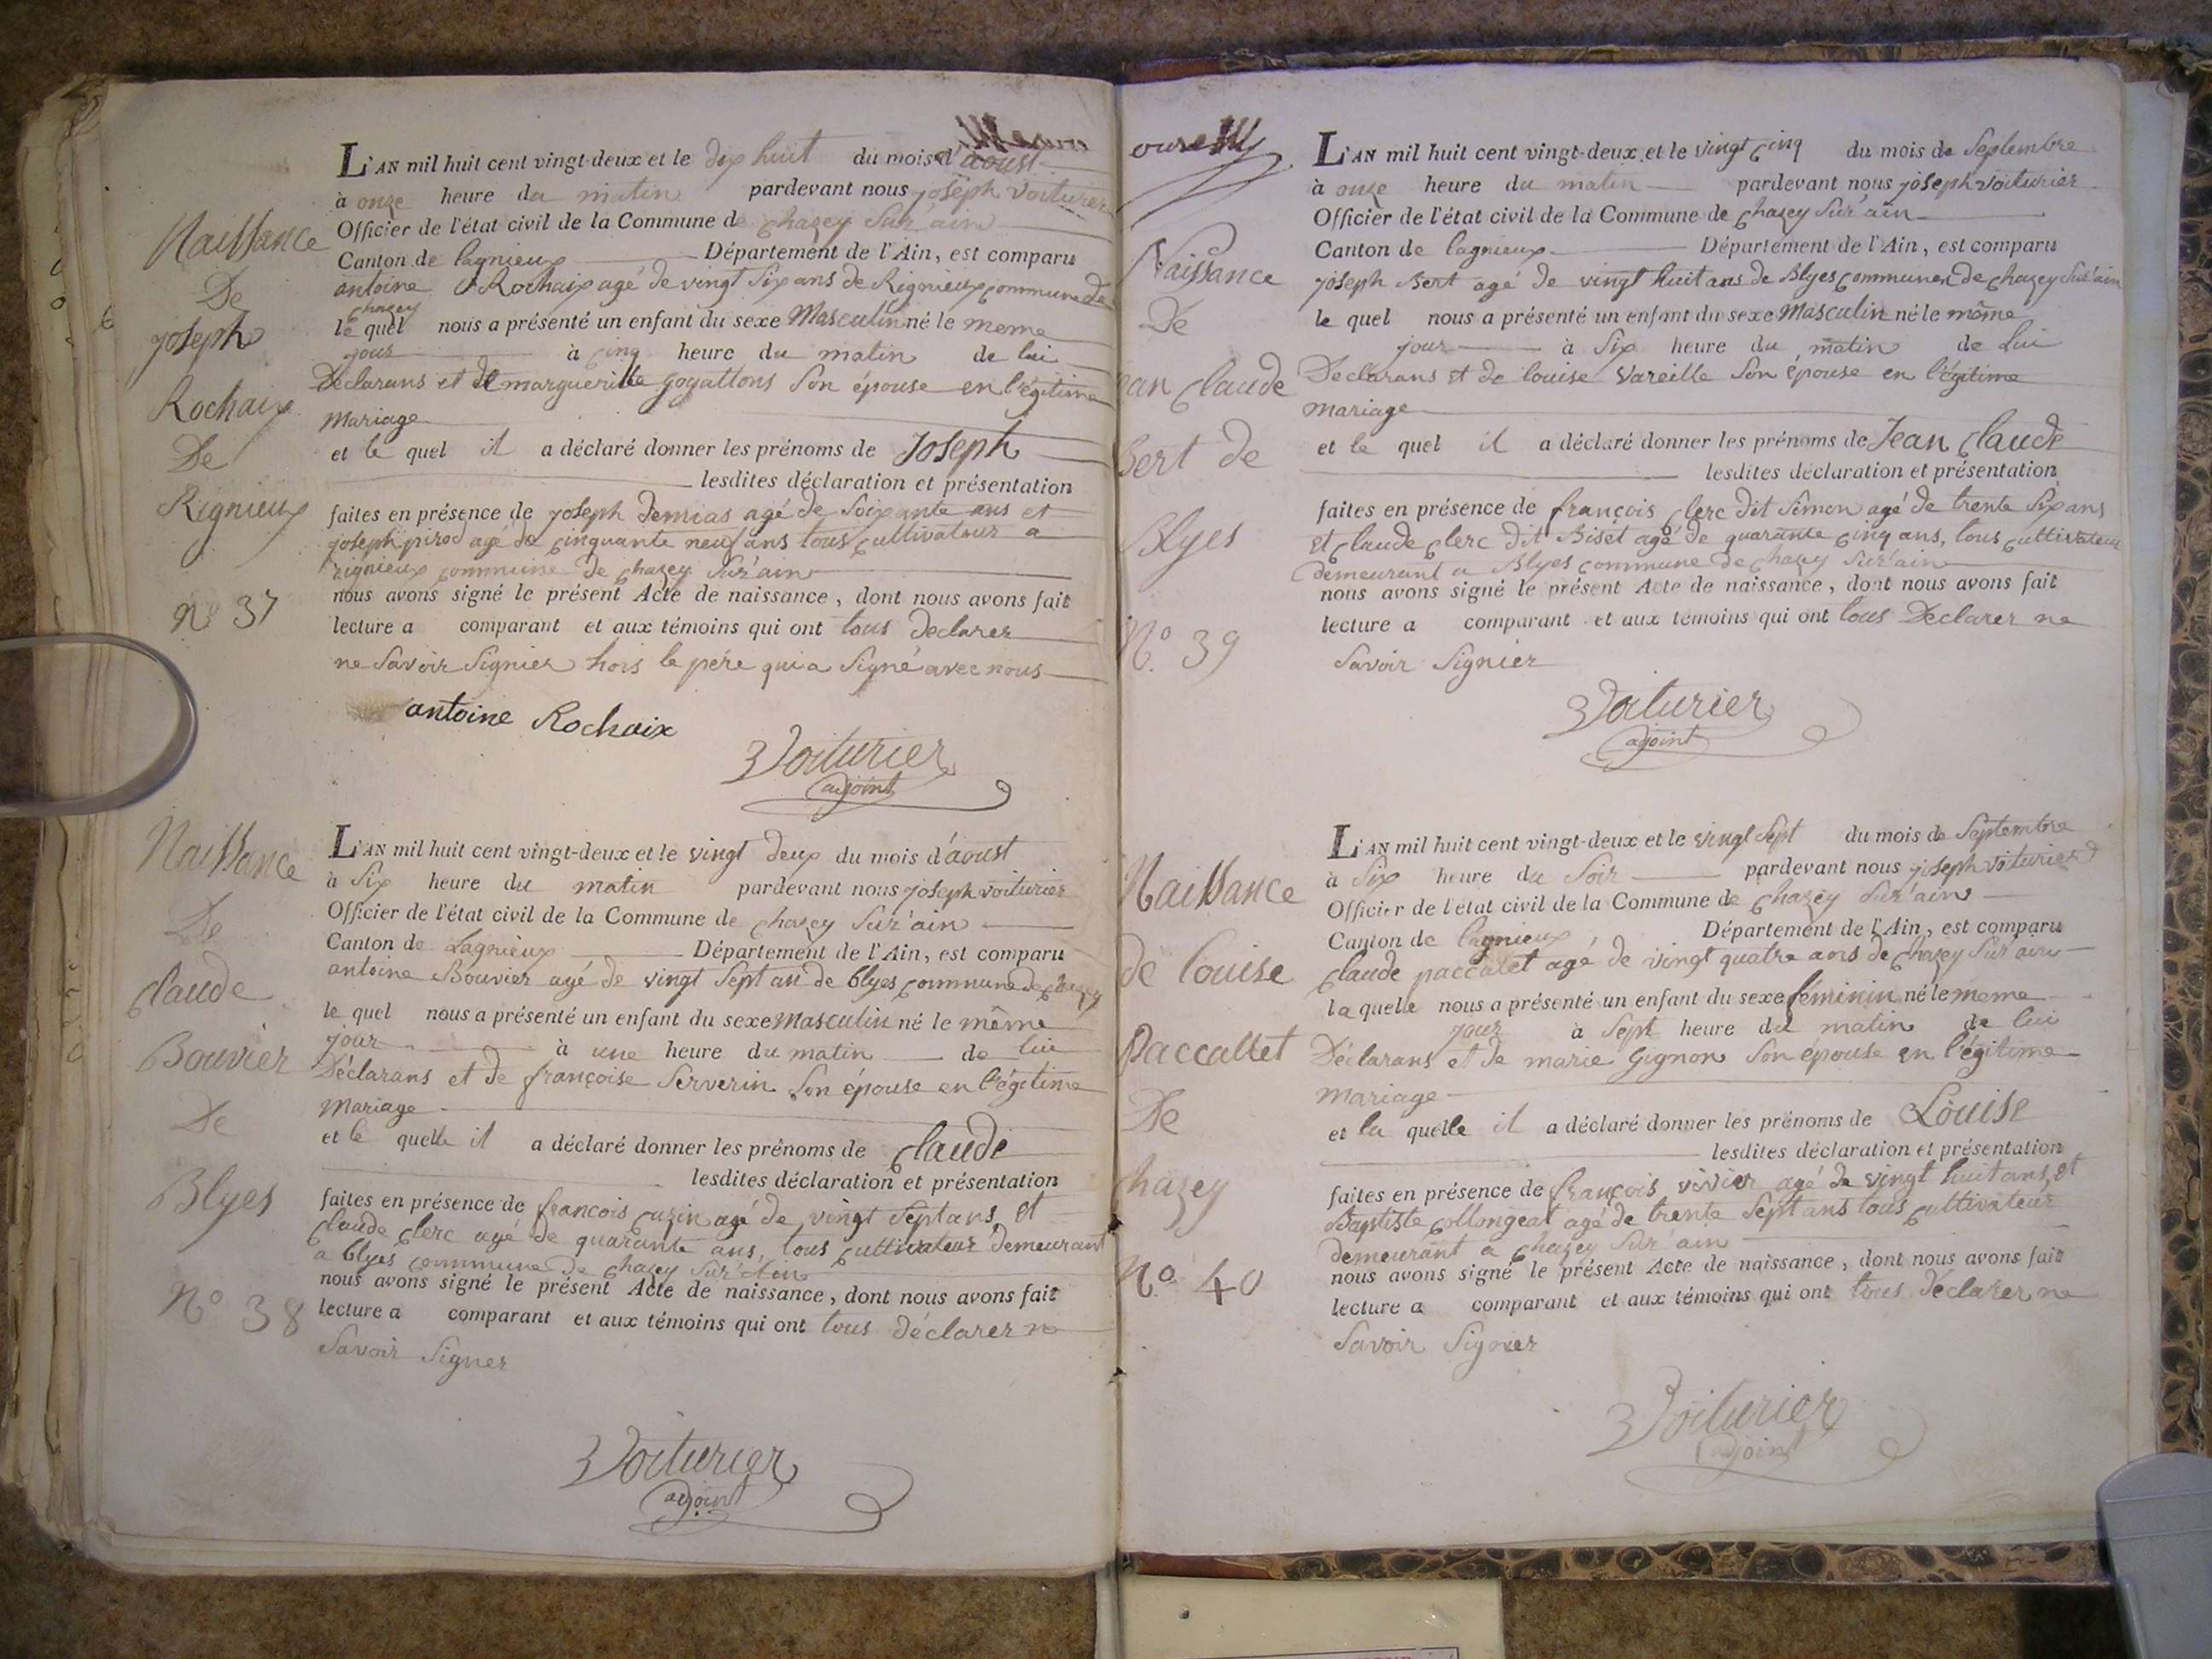 Naissance
De
joseph
Rochaix
De
Rignieux
N° 37
L'AN mil huit cent vingt-deux et le dix huit du mois d'aoust
à onze heure du matin pardevant nous joseph voiturier
Officier de l'état civil de la Commune de chazey Sur'ain
Canton de lagnieux Département de l'Ain, est comparu
antoine Rochaix agé de vingt Six ans de Rignieux commune de
chazey
le quel nous a présenté un enfant du sexe Masculin né le meme
jour à cinq heure du matin de lui
Déclarans et de marguerille goyattons Son épouse en l'égitime
Mariage
et le quel il a déclaré donner les prénoms de Joseph
lesdites déclaration et présentation
faites en présence de joseph Demias agé de Soixante ans et
joseph pirod agé de cinquante neuf ans tous cultivateur a
rignieux commune de chazey Sur'ain
nous avons signé le présent Acte de naissance, dont nous avons fait
lecture a comparant et aux témoins qui ont tous Declarer
ne Savoir Signier hors le pére qui a Signé avec nous
antoine Rochaix
Voiturier
adjoint
Naissance
De
claude
Bouvier
De
Blyes
N° 38
L'AN mil huit cent vingt-deux et le vingt deux du mois d'aoust
à Six heure du matin pardevant nous joseph voiturier
Officier de l'état civil de la Commune de chazey Sur'ain
Canton de Lagnieux Département de l'Ain, est comparu
antoine Bouvier agé de vingt Sept an de blyes commune de chazey
le quel nous a présenté un enfant du sexe Masculin né le même
jour à une heure du matin de lui
Déclarans et de françoise Serverin Son épouse en l'égitime
Mariage
et le quelle il a déclaré donner les prénoms de claude
lesdites déclaration et présentation
faites en présence de francois cuzin agé de vingt Sept ans et
claude clerc agé de quarante ans, tous cultivateur demeurant
a blyes commune de chazey Sur'Ain
nous avons signé le présent Acte de naissance, dont nous avons fait
lecture a comparant et aux témoins qui ont tous déclarer ne
Savoir Signer
Voiturier
adjoint
Naissance
De
ean claude
Bert de
Blyes
N° 39
L'AN mil huit cent vingt-deux et le vingt cinq du mois de Septembre
à onze heure du matin pardevant nous joseph voiturier
Officier de l'état civil de la Commune de chazey Sur'ain
Canton de lagnieux Département de l'Ain, est comparu
joseph Bert agé de vingt huit ans de Blyes commune de chazey Sur'ain
le quel nous a présenté un enfant du sexe Masculin né le même
jour à Six heure du matin de Lui
Declarans et de louise Vareille Son épouse en l'égitime
mariage
et le quel il a déclaré donner les prénoms de Jean claude
lesdites déclaration et présentation
faites en présence de françois clerc dit Simon agé de trente Six ans
et claude clerc dit Biset agé de quarante cinq ans, tous cultivateur
demeurant a Blyes commune de chazey Sur'ain
nous avons signé le présent Acte de naissance, dont nous avons fait
lecture a comparant et aux témoins qui ont tous Déclarer ne
Savoir Signier
Voiturier
adjoint
Naissance
de louise
Paccallet
De
chazey
N° 40
L'AN mil huit cent vingt-deux et le vingt Sept du mois de Septembre
à Six heure du Soir pardevant nous joseph voiturier
Officier de l'état civil de la Commune de chazey Sur'ain
Canton de lagnieux Département de l'Ain, est comparu
claude paccalet agé de vingt quatre ans de chazey Sur ain
la quelle nous a présenté un enfant du sexe féminin né le meme
jour à Sept heure du matin de lui
Déclarans et de marie Gignon Son épouse en l'égitime
mariage
et la quelle il a déclaré donner les prénoms de Louise
lesdites déclaration et présentation
faites en présence de françois vivier agé de vingt huit ans, et
Baptiste collongeat agé de trente Sept ans tous cultivateur
demeurant a chazey Sur ain
nous avons signé le présent Acte de naissance, dont nous avons fait
lecture a comparant et aux témoins qui ont tous Déclarer ne
Savoir Signier
Voiturier
adjoint